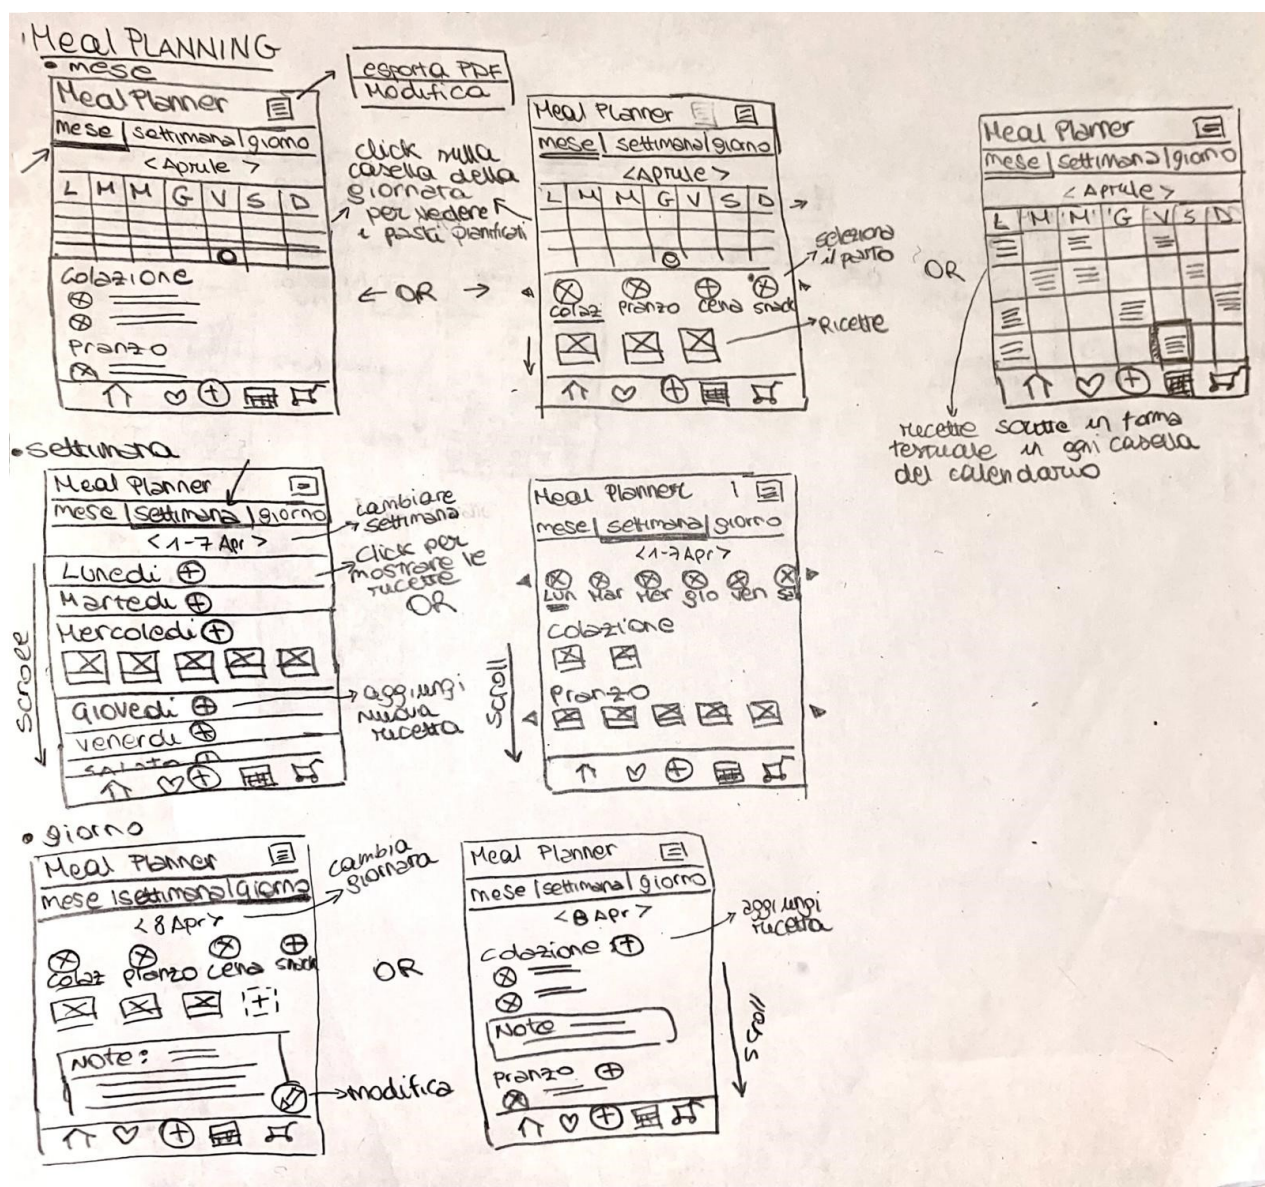 Meal PLANNING
• mese
Meal Planner
mese | settimana | giorno
< Aprile >
L M M G V S D
colazione
pranzo
esporta PDF
Modifica
click sulla
casella della
giornata
per vedere
i pasti pianificati
← OR →
Meal Planner
mese | settimana | giorno
< Aprile >
L M M G V S D
colaz pranzo cena snack
seleziona
il pasto
Ricette
OR
Meal Planner
mese | settimana | giorno
< Aprile >
L M M G V S D
ricette scritte in forma
testuale in ogni casella
del calendario
• settimana
Meal Planner
mese | settimana | giorno
< 1-7 Apr >
Lunedì +
Martedì +
Mercoledì +
Giovedì +
venerdì +
sabato +
scroll
cambiare
settimana
click per
mostrare le
ricette
OR
aggiungi
nuova
ricetta
Meal Planner
mese | settimana | giorno
< 1-7 Apr >
Lun Mar Mer gio ven sa
colazione
pranzo
scroll
• giorno
Meal Planner
mese | settimana | giorno
< 8 Apr >
colaz pranzo cena snack
+
Note:
cambia
giornata
modifica
OR
Meal Planner
mese | settimana | giorno
< 8 Apr >
colazione +
Note
pranzo +
aggiungi
ricetta